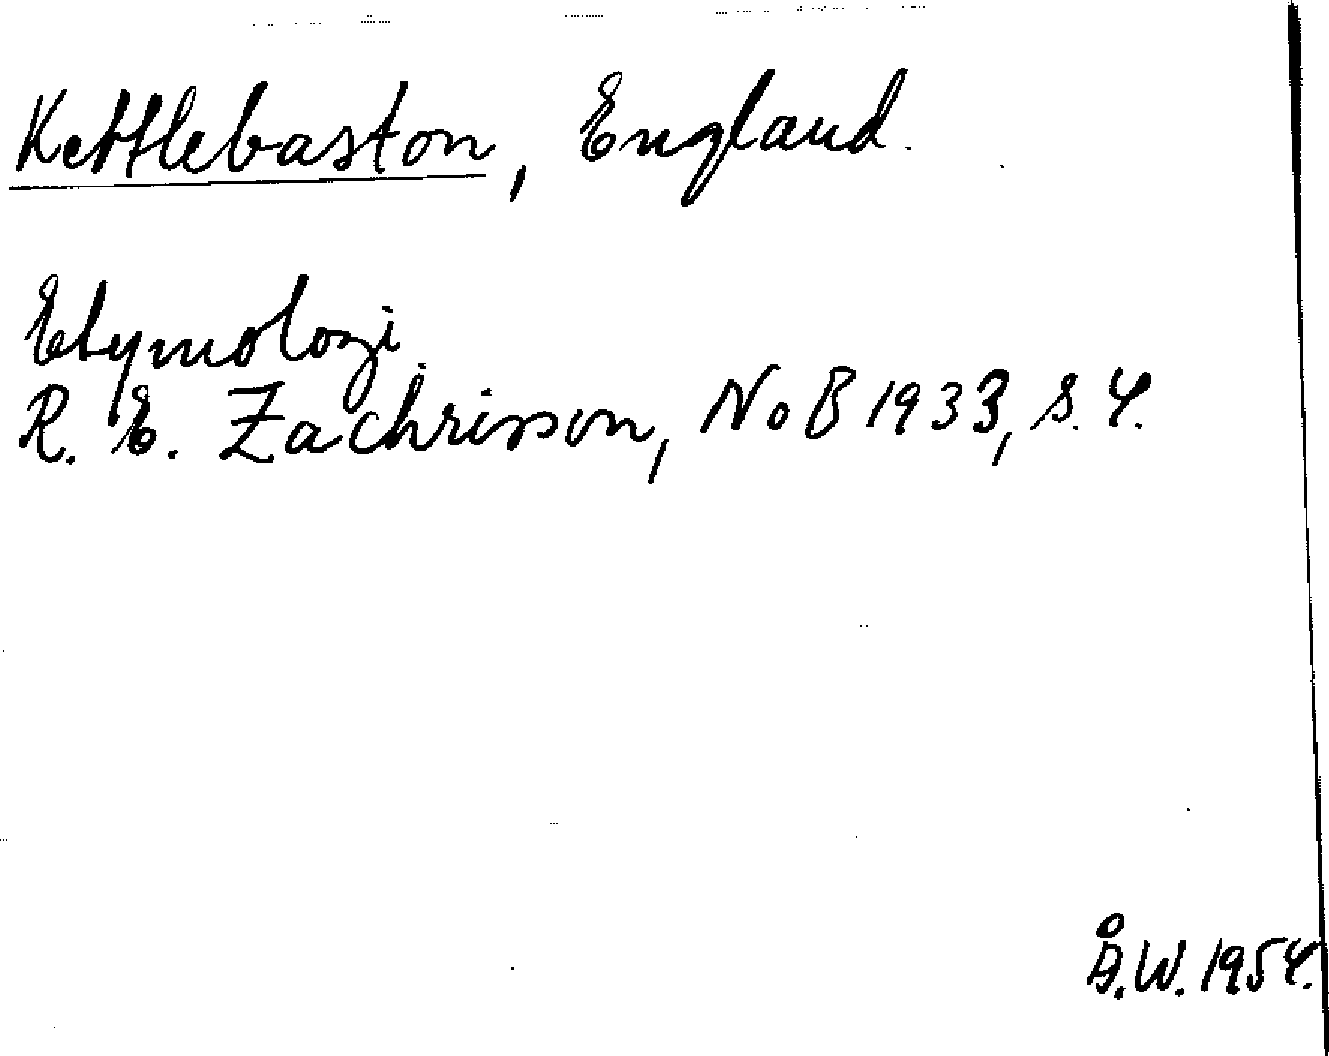 Kettlebaston, England.
Etymologi
R. E. Zachrisson, NoB 1933, s. 4.
Å.W. 1954.